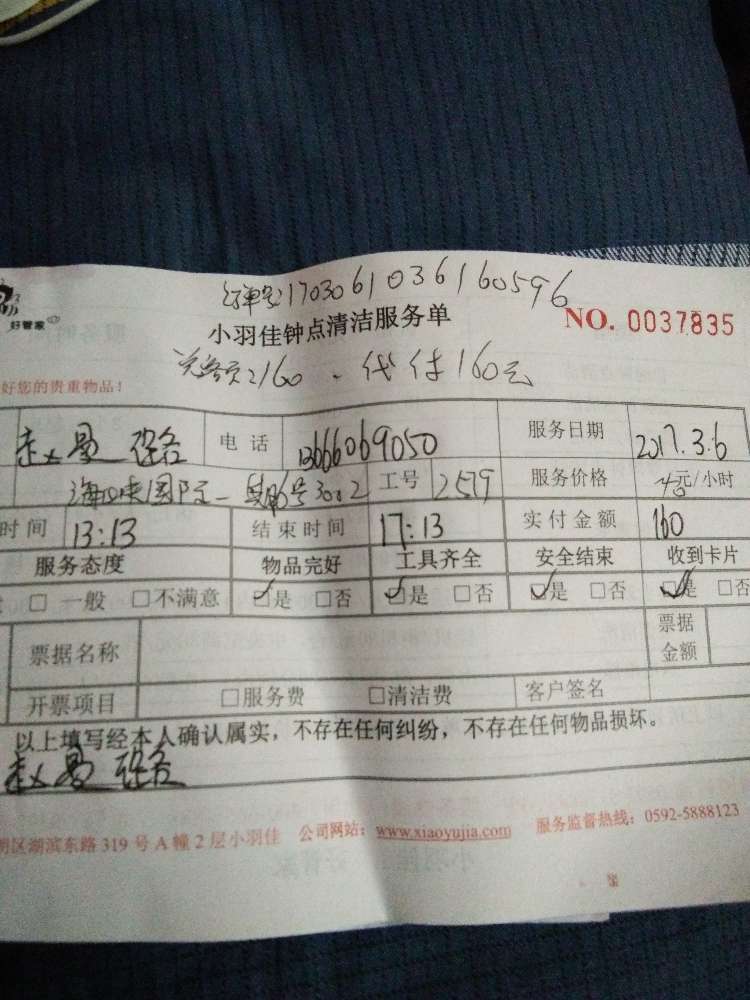 好管家
17030610361 60596
小羽佳钟点清洁服务单 NO. 0037835
160、代付160元
好您的贵重物品!
电话 13666069050 服务日期 2017.3.6
3002 工号 2579 服务价格 40元/小时
时间 13:13 结束时间 17:13 实付金额 160
服务态度 物品完好 工具齐全 安全结束 收到卡片
□一般 □不满意 ☑是 □否 ☑是 □否 ☑是 □否 ☑是 □否
票据名称 票据金额
开票项目 □服务费 □清洁费 客户签名
以上填写经本人确认属实,不存在任何纠纷,不存在任何物品损坏。
明区湖滨东路319号A幢2层小羽佳 公司网站:www.xiaoyujia.com 服务监督热线:0592-5888123